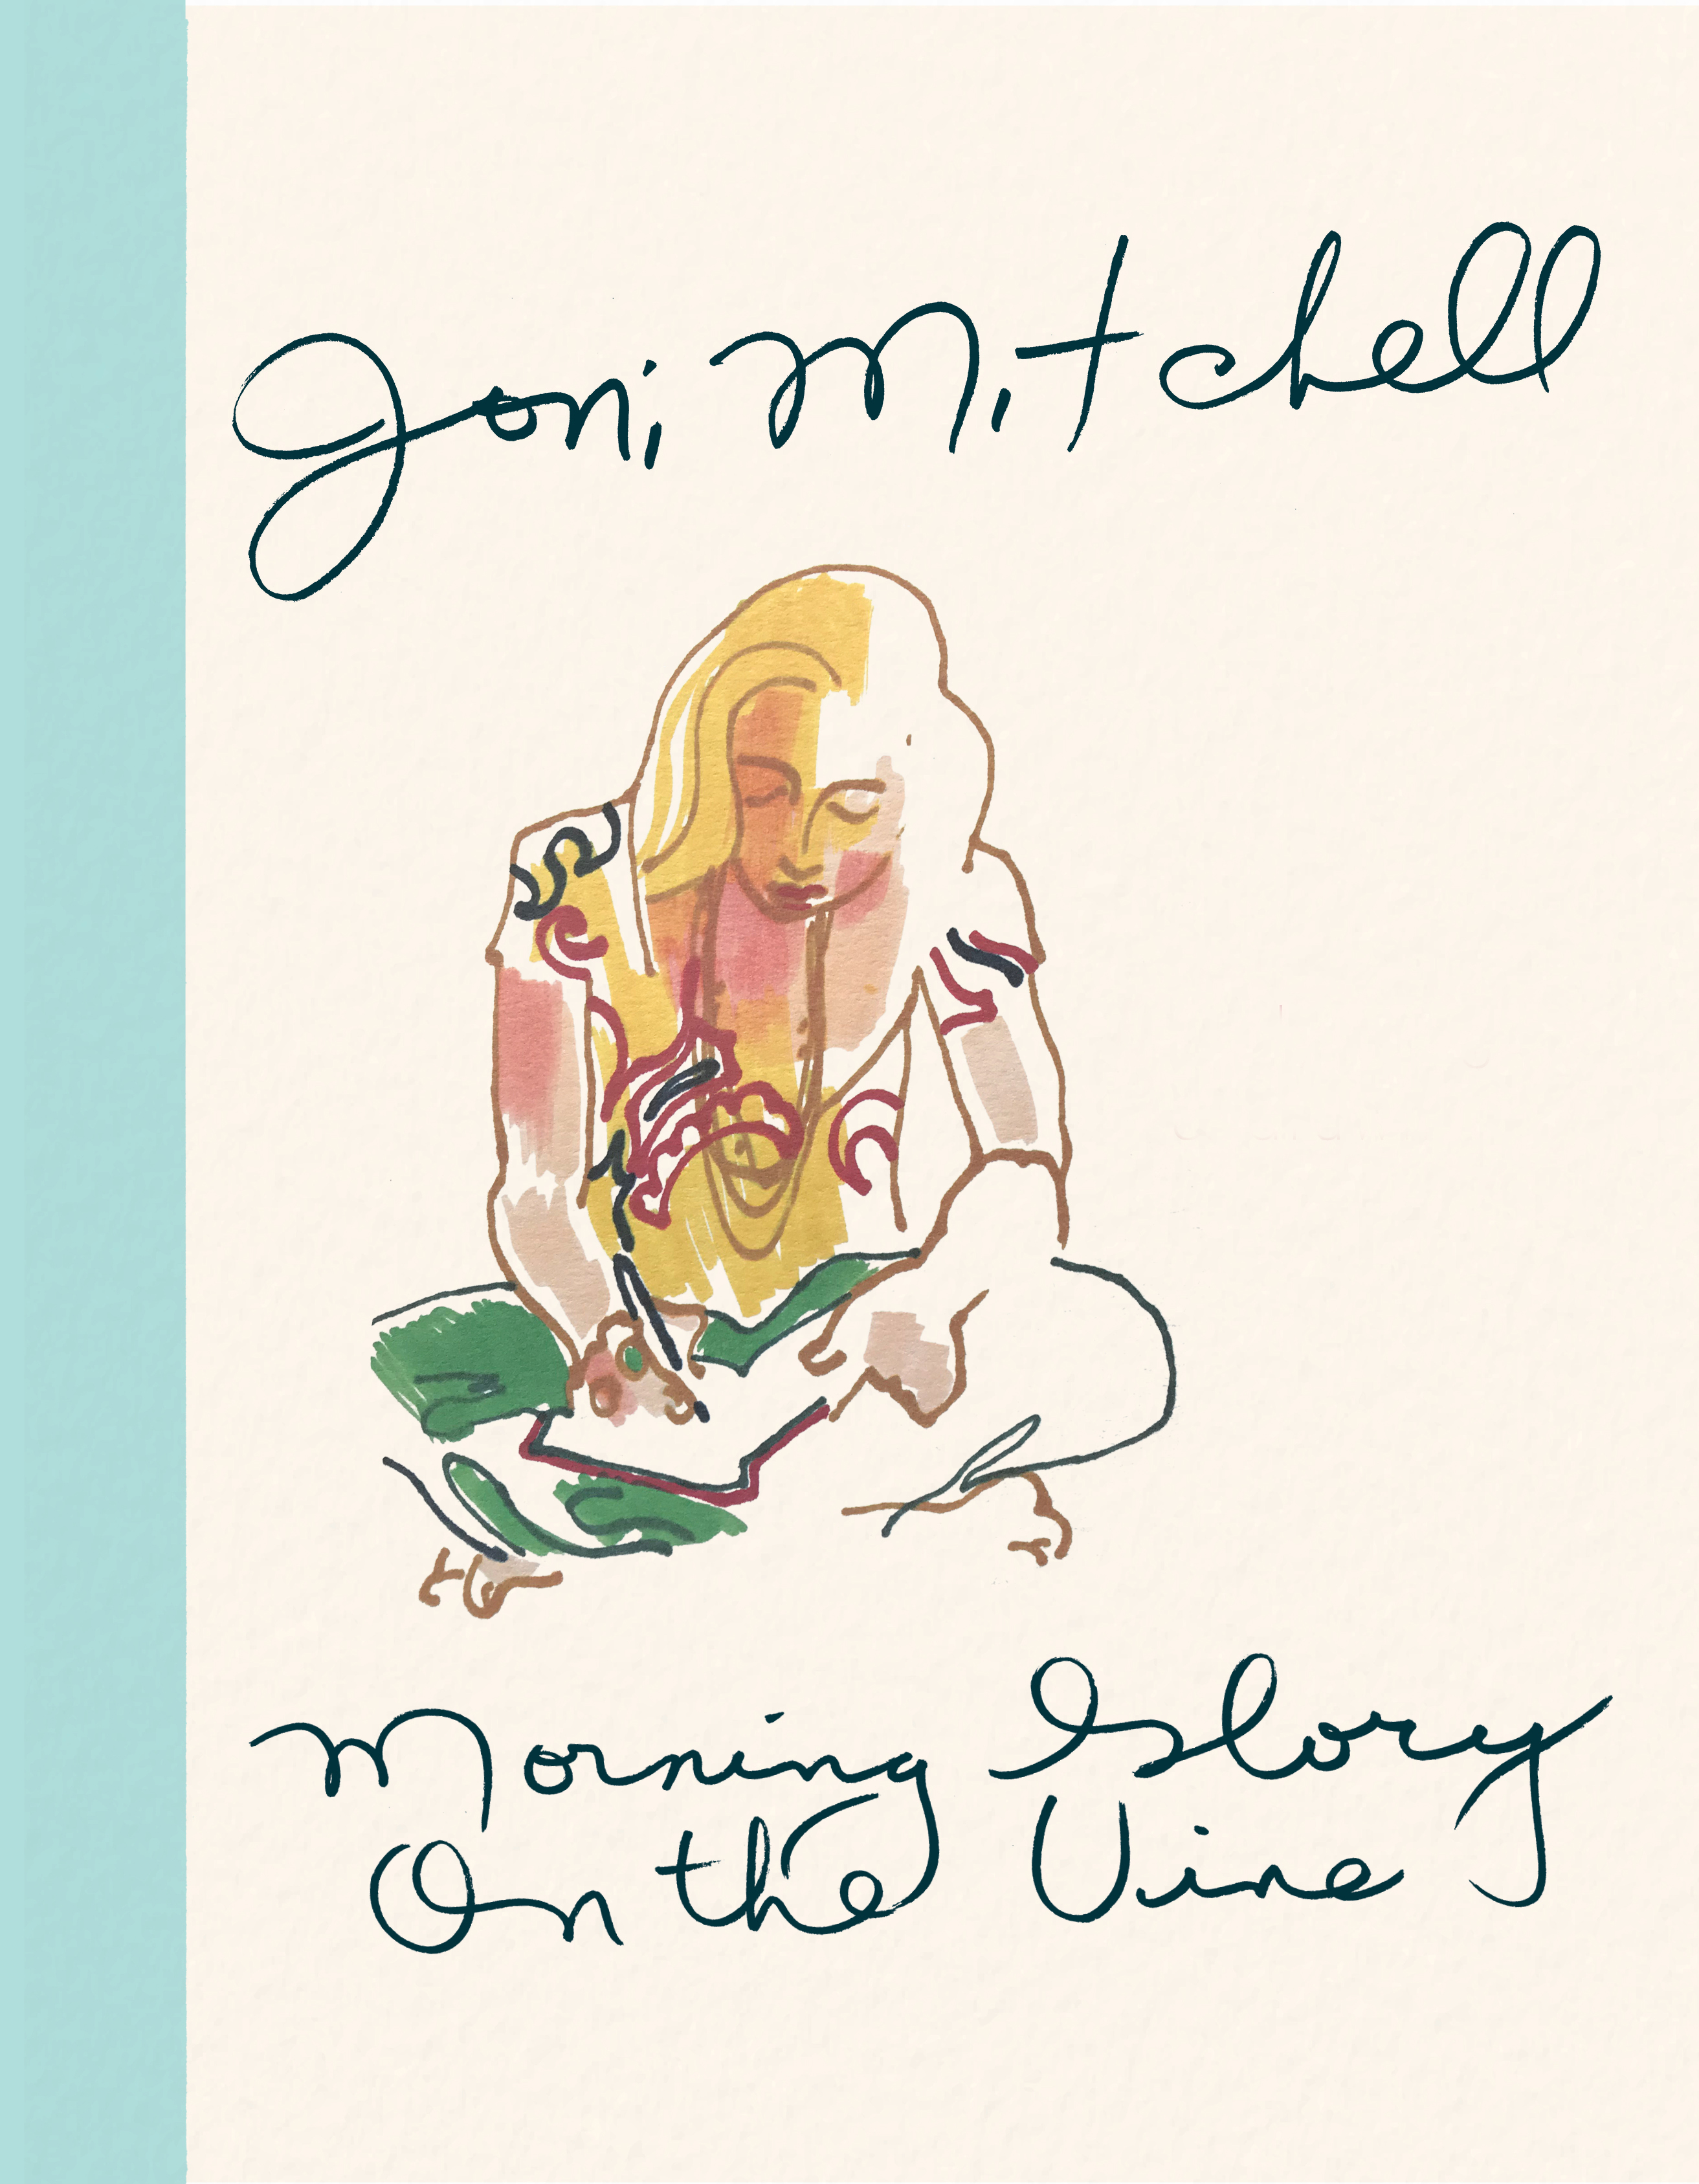 Joni Mitchell
Morning Glory
On the Vine